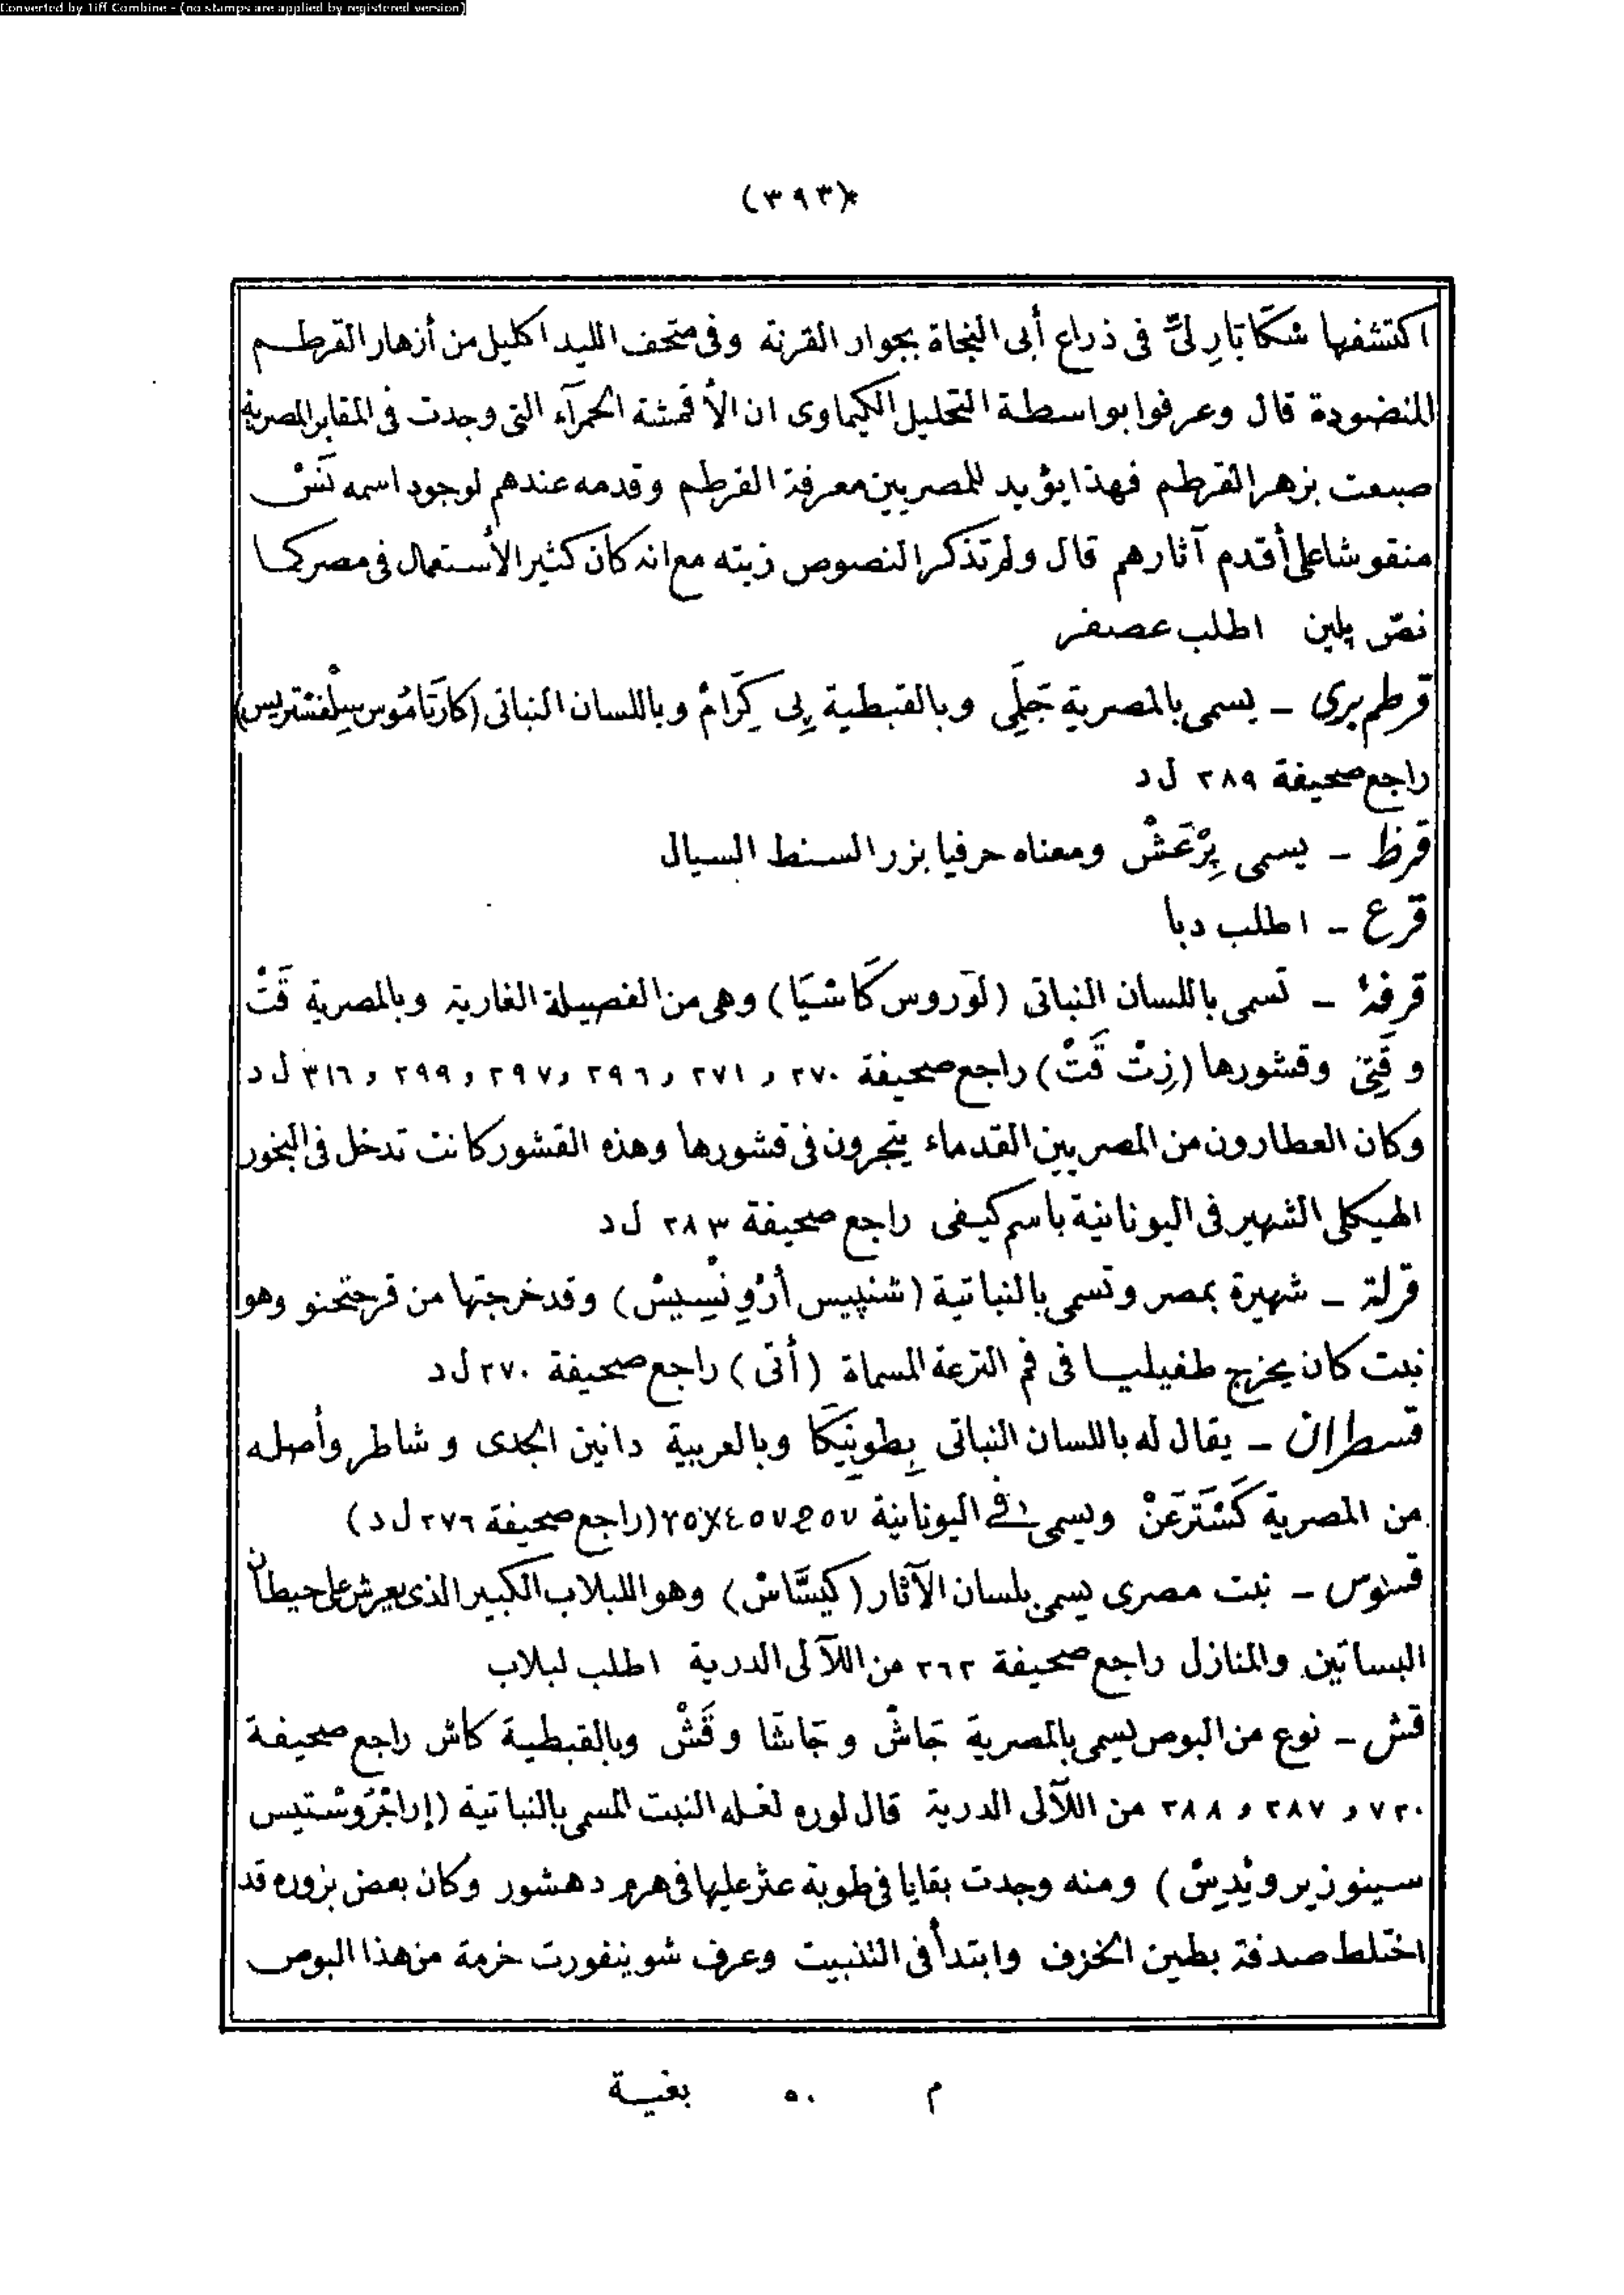 Converted by Tiff Combine - (no stamps are applied by registered version)
(٣٩٣)
اكتشفها شكَاتَارِلىِّ فى ذراع أبى النجاة بجوار القرنة وفى متحف الليد اكليل من أزهار القرطم
المنضودة قال وعرفوا بواسطة التحليل الكيماوى ان الأقمشة الحمرآء التى وجدت فى المقابر المصرية
صبعت بزهر القرطم فهذا يؤيد للمصريين معرفة القرطم وقدمه عندهم لوجود اسمه نَسْ
منقوشا على أقدم آثارهم قال ولم تذكر النصوص زيته مع انه كان كثير الأستعمال فى مصر كما
نص پلين اطلب عصفر
قرطم برى ـ يسمى بالمصرية تَجلِى وبالقبطية پِى كِرَامْ وباللسان النباتى (كَارتَامُوس سِلْفستريس)
راجع صحيفة ٢٨٩ ل د
قرظ ـ يسمى پِرْعَشْ ومعناه حرفيا بزر السنط السيال
قرع ـ اطلب دبا
قرفة ـ تسمى باللسان النباتى (لَوروس كَاشيَا) وهى من الفصيلة الغارية وبالمصرية قَتْ
و قَتِى وقشورها (زِتْ قَتْ) راجع صحيفة ٢٧٠ و ٢٧١ و ٢٩٦ و ٢٩٧ و ٢٩٩ و ٣١٦ ل د
وكان العطارون من المصريين القدماء يتجرون فى قشورها وهذه القشور كانت تدخل فى البخور
الهيكلى الشهير فى اليونانية باسم كيفى راجع صحيفة ٢٨٣ ل د
قرلة ـ شهيرة بمصر وتسمى بالنباتية (شنپيس أرْوِنْسِيسْ) وقد خرجتها من قرجتحنو وهو
نبت كان يخرج طفيليا فى فم الترعة المسماة (أتى) راجع صحيفة ٢٧٠ ل د
قسطران ـ يقال له باللسان النباتى بِطونِيكَا وبالعربية دانين الجدى وشاطر وأصله
من المصرية كَشْتَرعَنْ ويسمى فى اليونانية (راجع صحيفة ٢٧٦ ل د)
قسوس ـ نبت مصرى يسمى بلسان الآثار (كيسَّاسْ) وهو اللبلاب الكبير الذى يعرش على حيطان
البساتين والمنازل راجع صحيفة ٢٦٢ من اللآلى الدرية اطلب لبلاب
قش ـ نوع من البوص يسمى بالمصرية جَاشْ و جَاشَا و قَشْ وبالقبطية كاش راجع صحيفة
٧٢٠ و ٢٨٧ و ٢٨٨ من اللآلى الدرية قال لوره لعله النبت المسمى بالنباتية (إراجْرُوسْتيس
سينوزيرويْدِسْ) ومنه وجدت بقايا فى طوبة عثر عليها فى هرم دهشور وكان بعض بزوره قد
اختلط صدفة بطين الخزف وابتدأ فى التنبيت وعرف شوينفورت خرمة من هذا البوص
م ٥٠ بغية